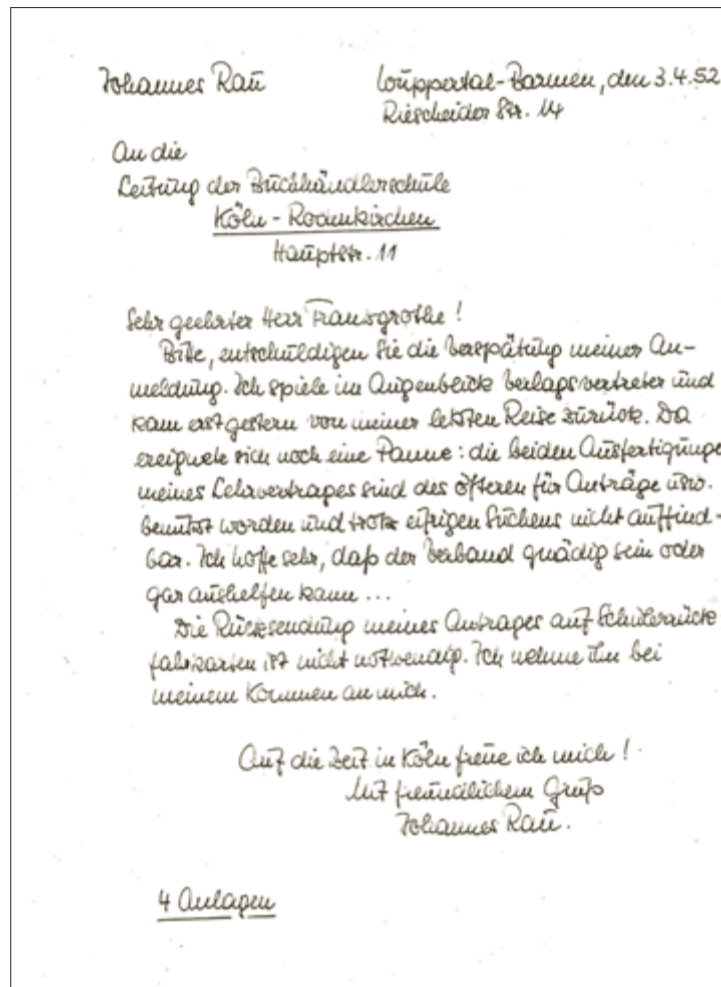 Johannes Rau
Wuppertal-Barmen, den 3.4.52
Riescheider Str. 14
An die
Leitung der Buchhändlerschule
Köln-Rodenkirchen
Hauptstr. 11
Sehr geehrter Herr
Bitte, entschuldigen Sie die Verspätung meiner An-
meldung. Ich spiele im Augenblick Verlagsvertreter und
kam erst gestern von meiner letzten Reise zurück. Da
ereignete sich noch eine Panne: die beiden Ausfertigunge
meines Lehrvertrages sind des öfteren für Anträge usw.
benutzt worden und trotz eifrigen Suchens nicht auffind-
bar. Ich hoffe sehr, daß der Verband gnädig sein oder
gar aushelfen kann ...
Die Rücksendung meines Antrages auf Schülerrück-
fahrkarten ist nicht notwendig. Ich nehme ihn bei
meinem Kommen an mich.
Auf die Zeit in Köln freue ich mich!
Mit freundlichem Gruß
Johannes Rau.
4 Anlagen